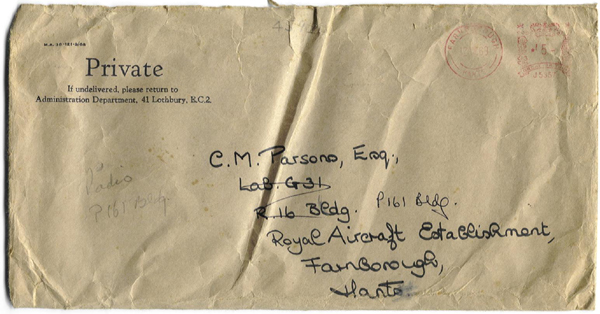 Private
If undelivered, please return to
Administration Department, 41 Lothbury, E.C.2.
C.M. Parsons, Esq.,
Lab. G31
R.16 Bldg. P161 Bldg.
Royal Aircraft Establishment,
Farnborough,
Hants.
Radio
P161 Bldg.